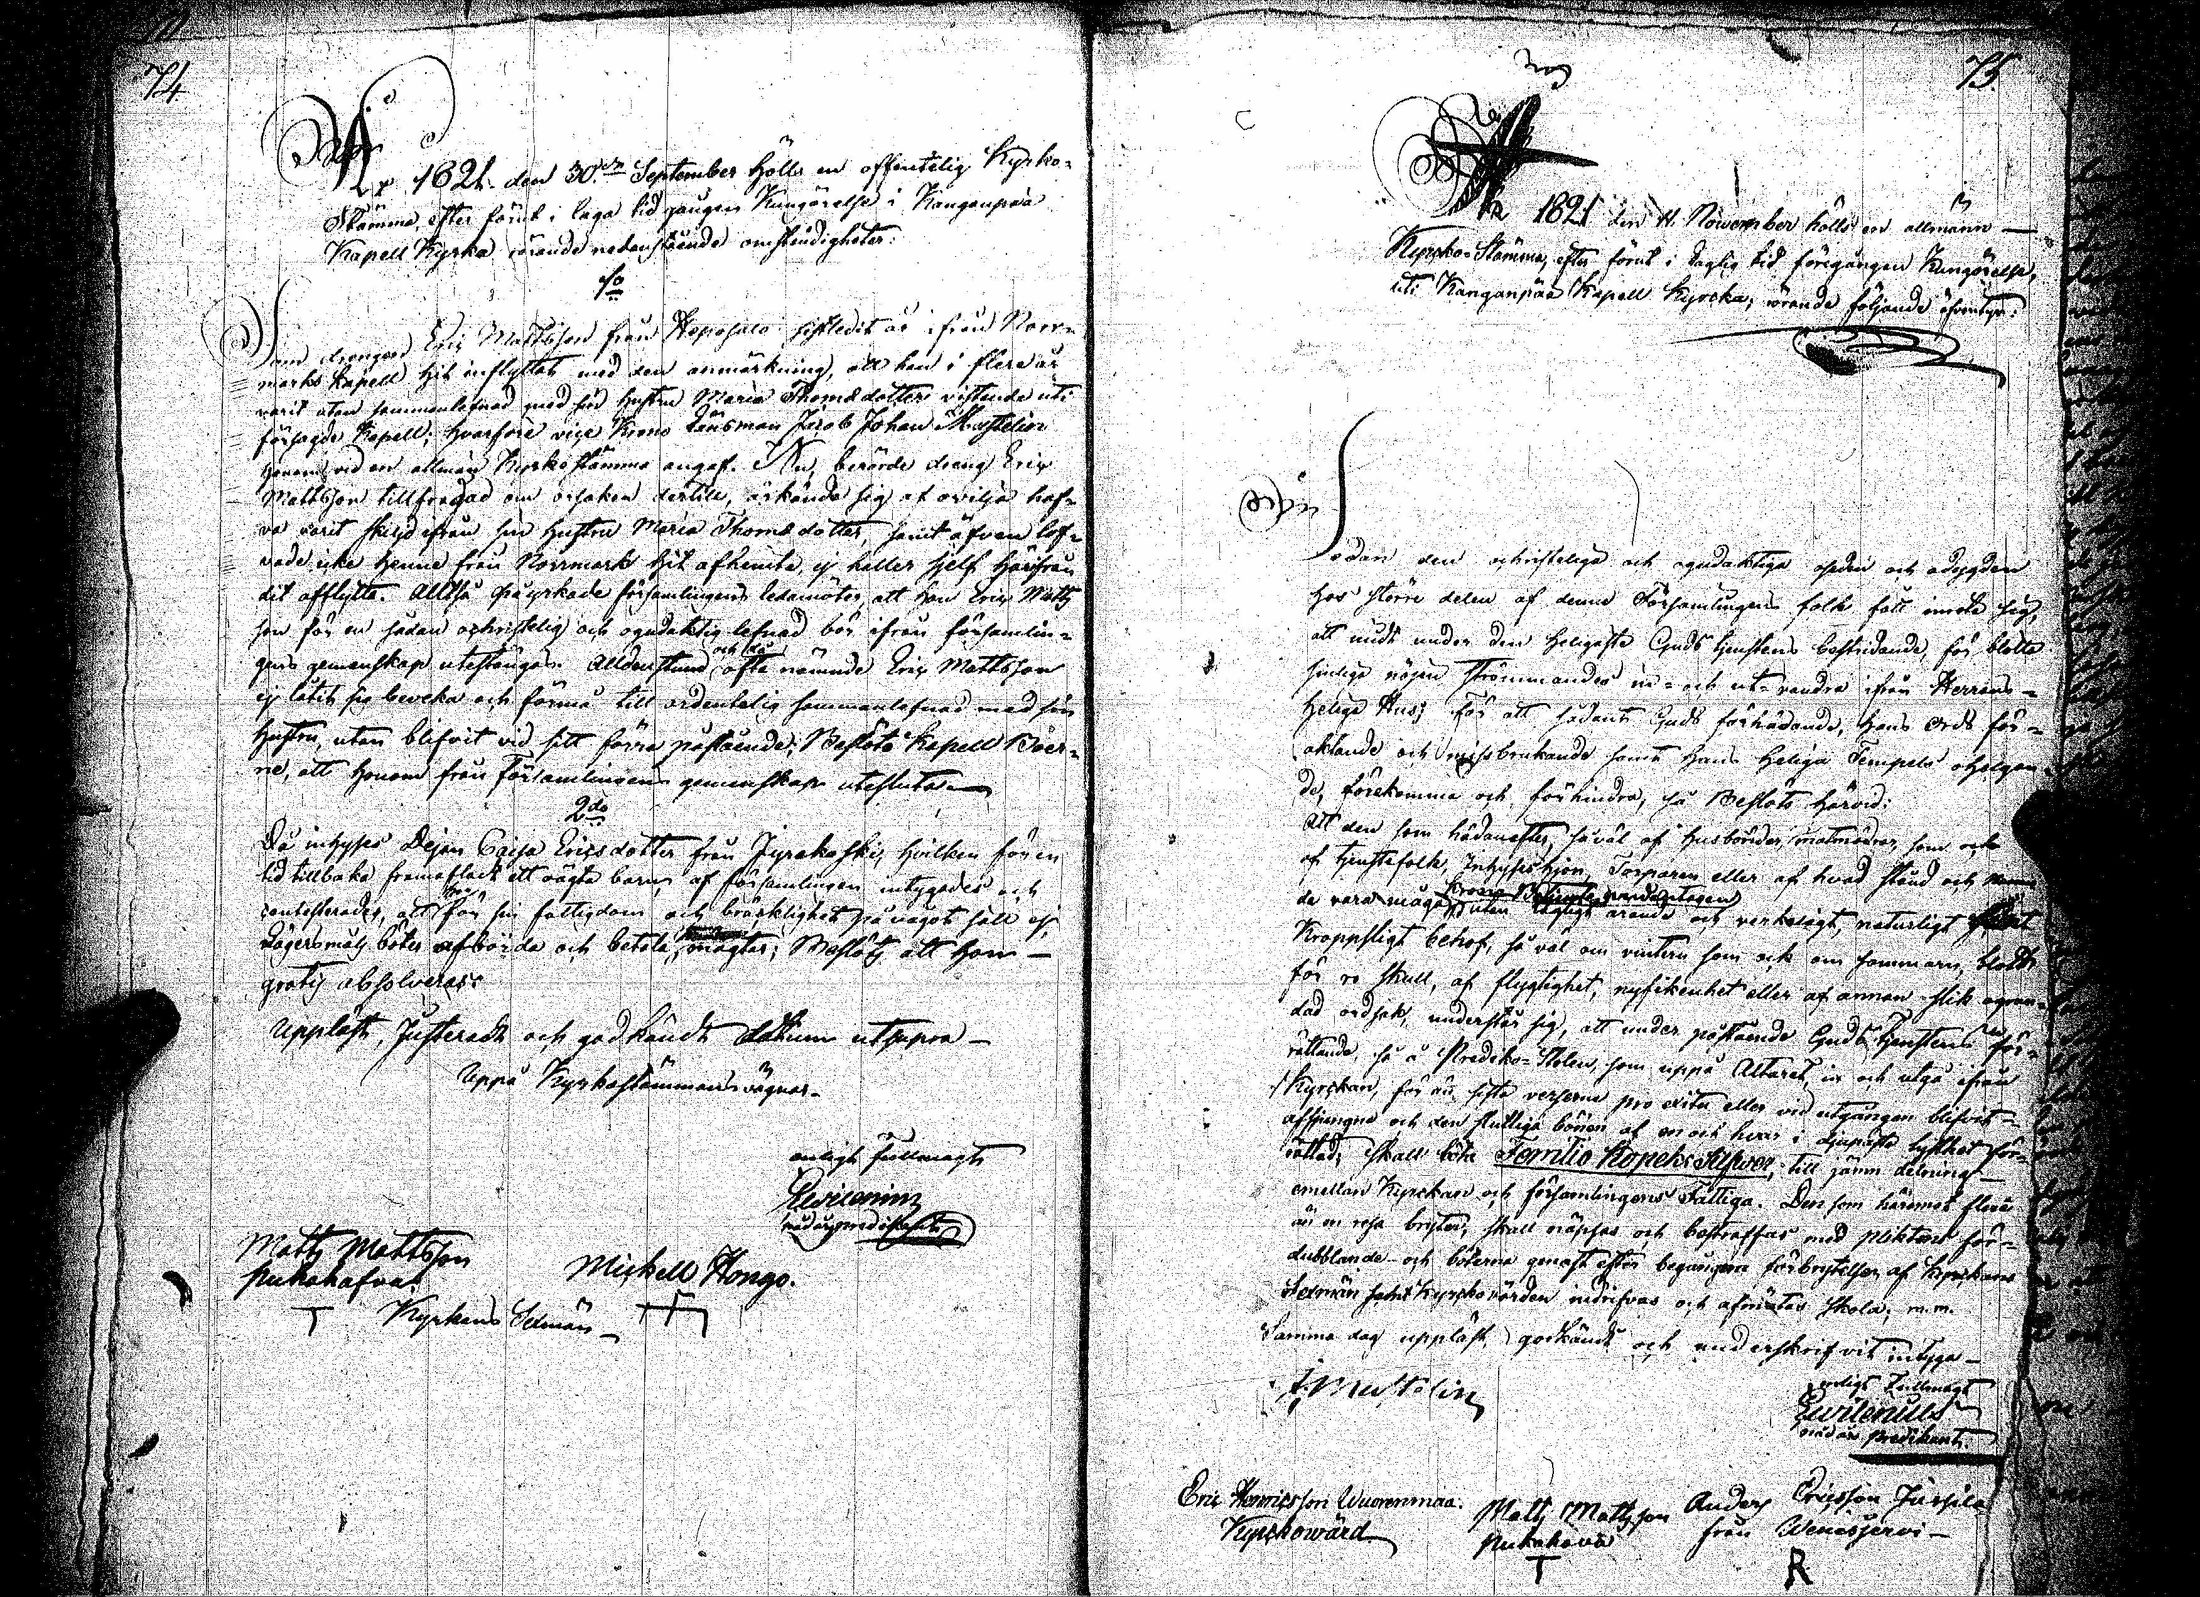 74
År 1821. den 30.de September Hölls en offentelig Kyrko-
Stämma, efter förut i laga tid gången Kungörelse i Kanganpää
Kapell Kyrka rörande nedanstående omständigheter:
1o
Som drengen Eric Mattsson från Heposalo sistledit år ifrån Norr-
marks Kapell hit inflyttat med den anmärkning, att han i flera år
varit utan sammanlefnad med sin hustru Maria Thomædotter vistande uti
försagde Kapell; hvarföre vice Krono Länsman Jacob Johan Mastelin
honom vid en allmän Kyrkostämma angaf. Nu, berörde dreng Eric
Mattsson tillfrågad om orsaken dertill, erkände sig af ovilja haf-
va varit skiljd ifrån sin hustru Maria Thomædotter, samt äfven lof-
vade icke henne från Norrmark hit afhemta, ej heller sjelf härifrån
dit afflytta. Alltså påyrkade församlingens ledamöter, att han Eric Matts
son för en sådan ochristelig och ogudaktig lefnad bör ifrån församlin-
gens gemenskap utestängas. Alldenstund och då ofta nämnde Eric Mattsson
ej låtit sig beveka och förmå till ordentelig sammanlefnad med sin
hustru, utan blifvit vid sitt förra påstående; Beslöts Kapell Boer-
ne, att honom från Församlingens gemenskap utesluta
2do
Då inhyses Dejan Caisa Ericsdotter från Jyrakoski, hvilken för en
tid tillbaka framaflat ett oägta barn, af församlingen intygades och
contesterades, att hon för sin fattigdom och bräcklighet på något sätt ej
Lägersmåls böter afbörda och betala mägtar; Beslöts att hon
gratis absolveras
Uppläst, Justeradt och godkändt datum utsupra
Uppå Kyrkostämmans vägnar
enligt Fullmagt
nådårspredikant
Matts Mattsson
Pukahafva
Michell Hongo.
Kyrkans Sexmän
75.
År 1821 den 11. Nowember hölls en allmänn
Kyrcko-Stämma, efter förut i laglig tid föregången Kungörelse,
uti Kanganpää Kapell Kyrcka, rörande följande
Sedan den ochristeliga och ogudaktiga oseden och odygden
hos större delen af denna Församlingens folk fått inrota sig,
att midt under den heligaste Guds tjenstens bestridande, för blotta
syndiga nöjen strömmandes in- och ut-vandra ifrån Herrans
heliga Hus; För att sådant Guds förhådande, hans Ords för-
aktande och missbrukande samt Hans heliga Tempels ohelgan-
de, förekomma och förhindra, så Beslöts härvid:
Att den som hädanefter, så väl af Husbönder, matmödrar, som ock
af tjenstefolk, Inhyseshjon, Torparen eller af hvad stånd och namn
de vara måga utan laglig ärende och verkeligt, naturligt
Kroppsligt behof, så väl om vintern som ock om sommarn, blott
för ro skull, af flygtighet, nyfikenhet eller af annan slik ogrun-
dad ordsak, understår sig, att under påstående Guds tjenstens för-
rättande, så å Predeko-Stolen, som uppå Altaret, in och utgå ifrån
Kyrckan, för än sista verserne pro exitu eller vid utgången blifvit
afsjungne och den slutliga bönen af en och hvar i djupaste tysthet för-
rättad; skall böta Femtio Kopek: Silfver, till jämn delning
emellan Kyrckan och församlingens Fattiga. Den som häremot flera
än en resa bryter, skall näpsas och bestraffas med pliktens för-
dubblande och böterna genast efter begångna förbrytelsen af Kyrckans
Sexmän samt Kyrckovärden indrifvas och afmätas skola. m.m.
Samma dag uppläst, godkändt och underskrifvit intyga
J: Mastelin
enligt Fullmagt
nådårs predikant.
Eric Henricsson Wuorenmaa.
Kyrckowärd
Matts Mattsson
Pukahåva
T
Anders Ericsson Jussila
från Wenesjervi
R